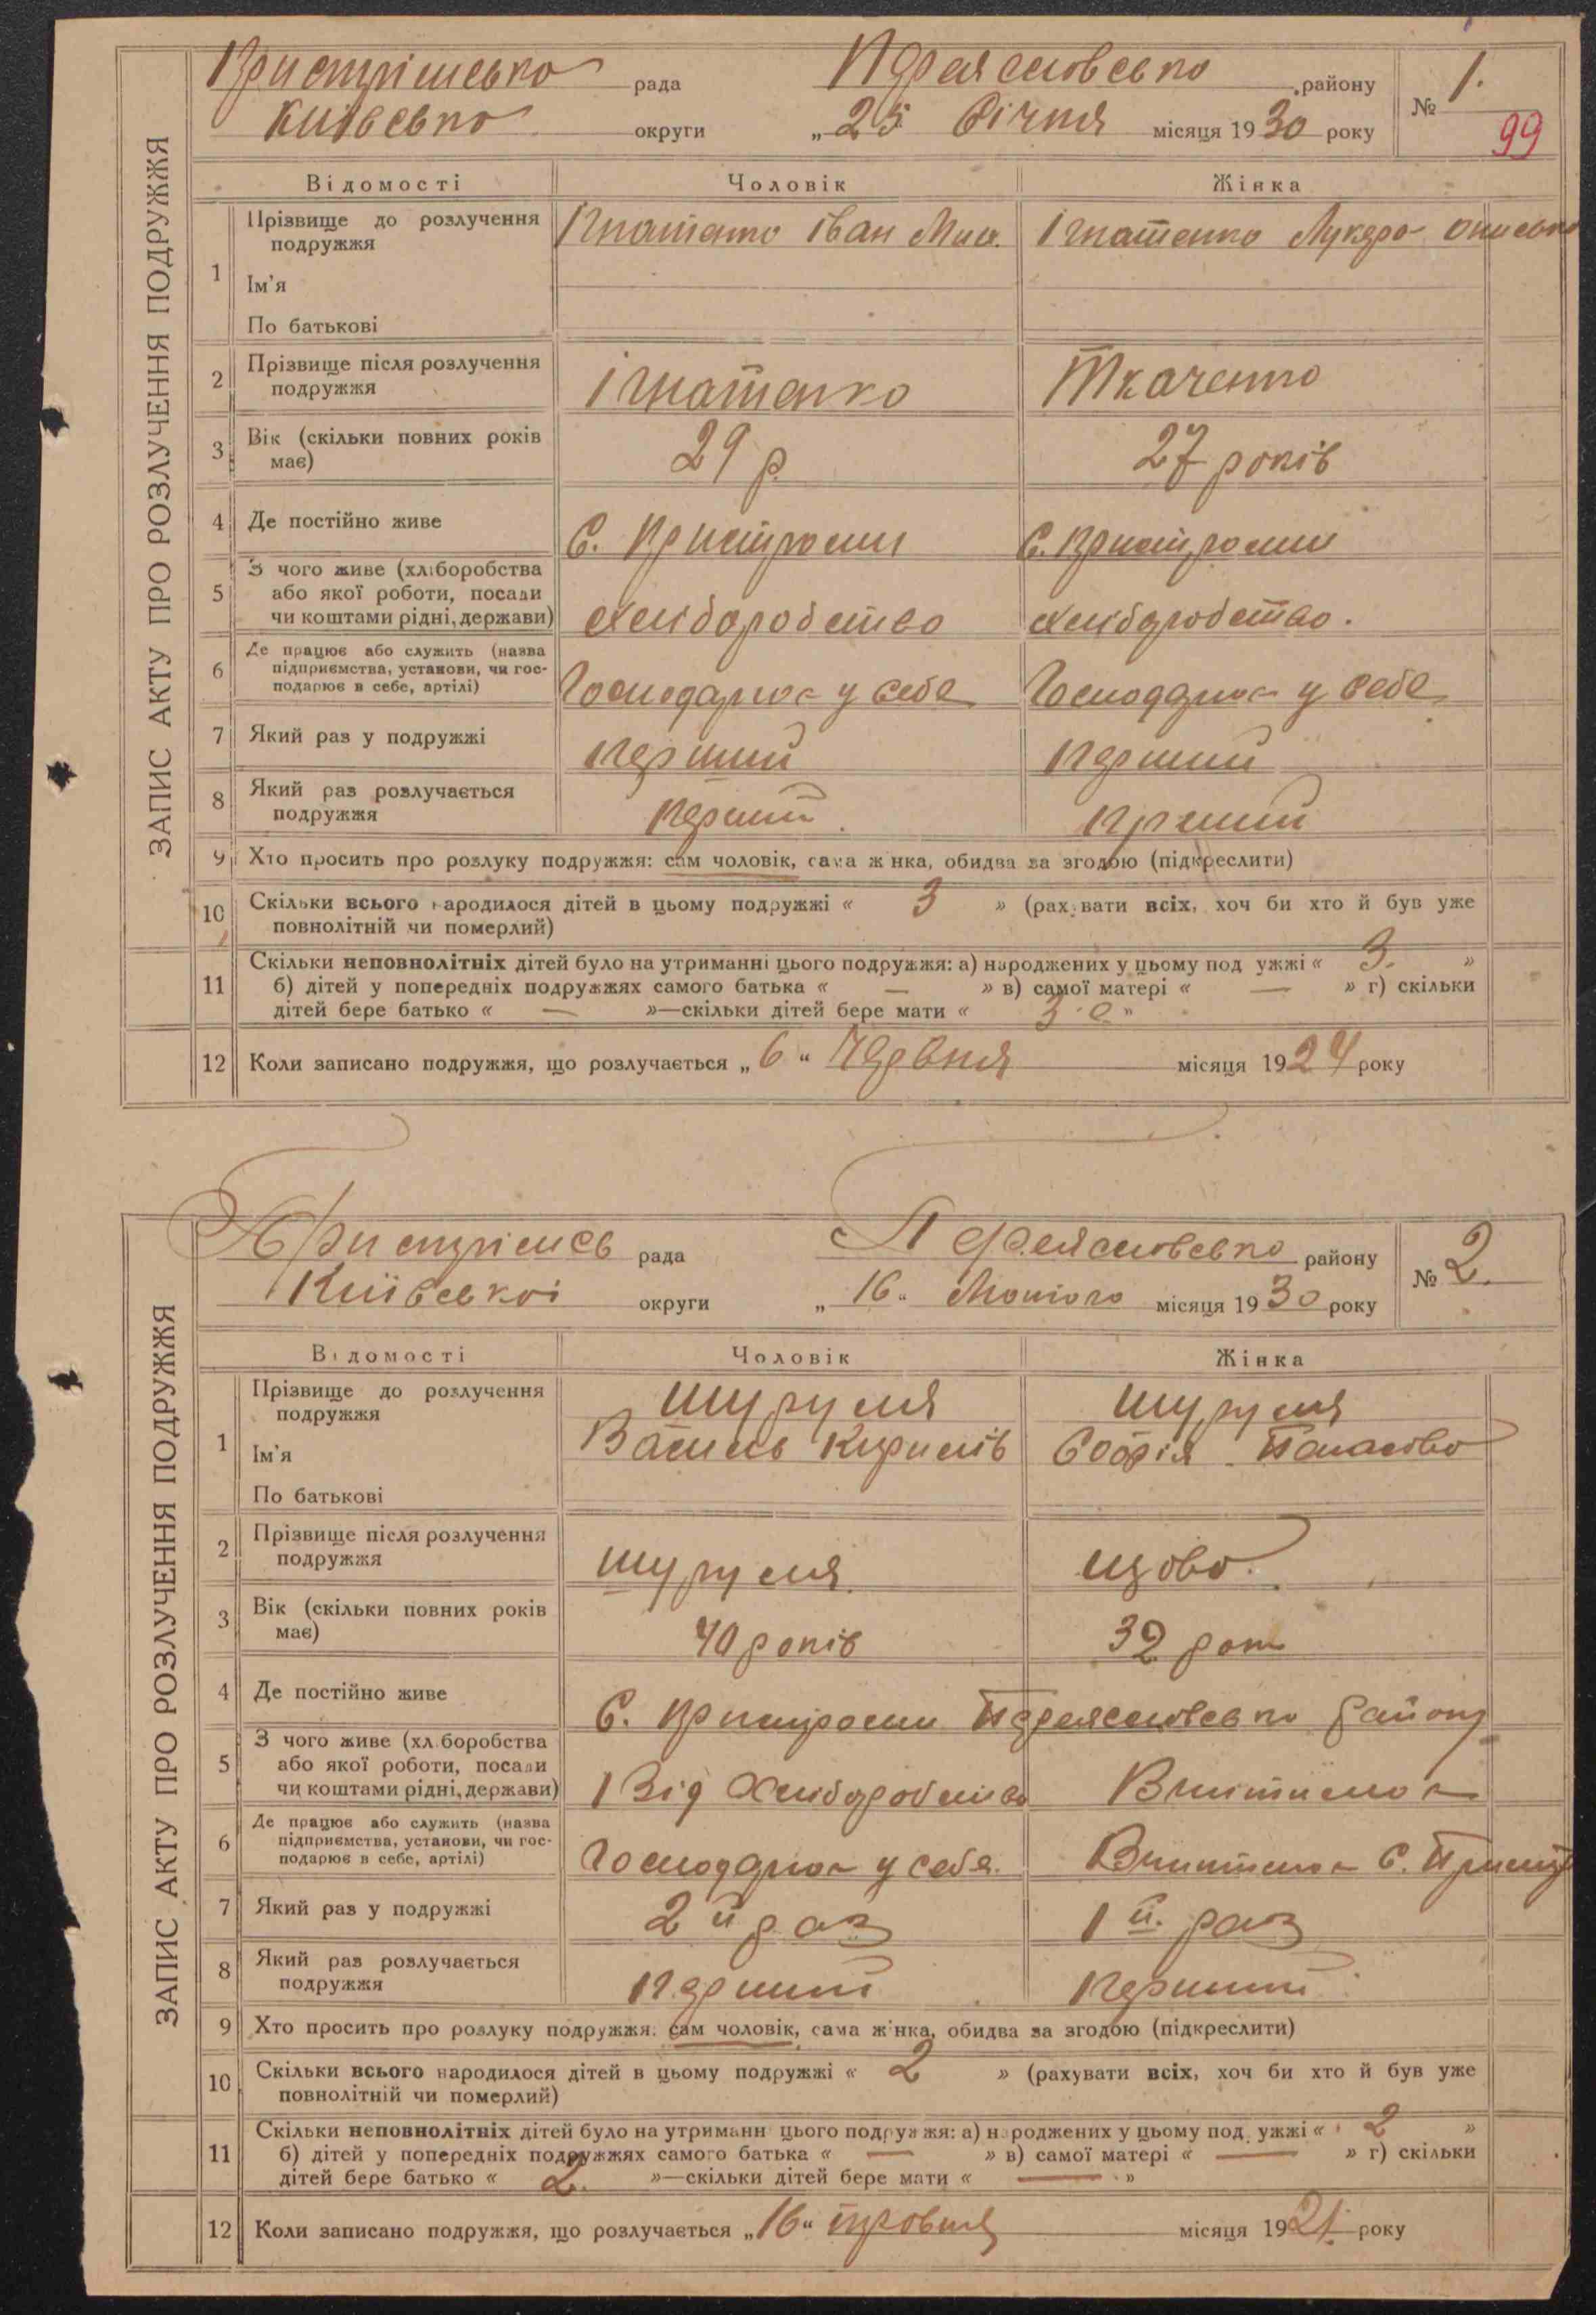 ЗАПИС АКТУ ПРО РОЗЛУЧЕННЯ ПОДРУЖЖЯ
рада района Переяслово району № 1.
Київсько округи „25 Січня місяця 1930 року 99
Відомості Чоловік Жінка
1 Прізвище до розлучення подружжя Ігнатенко Іван Мик. Ігнатенко Лукера
Ім'я
По батькові
2 Прізвище після розлучення подружжя Ігнатенко Ткаченко
3 Вік (скільки повних років має) 29 р. 27 років
4 Де постійно живе С. Пристроми С. Пристроми
5 З чого живе (хліборобства або якої роботи, посади чи коштами рідні, держави) хліборобство хліборобство.
6 Де працює або служить (назва підприємства, установи, чи господарює в себе, артілі) Господарює у себе Господарює у себе
7 Який раз у подружжі перший перший
8 Який раз розлучається подружжя перший перший
9 Хто просить про розлуку подружжя: сам чоловік, сама жінка, обидва за згодою (підкреслити)
10 Скільки всього народилося дітей в цьому подружжі « 3 » (рахувати всіх, хоч би хто й був уже
повнолітній чи померлий)
11 Скільки неповнолітніх дітей було на утриманні цього подружжя: а) народжених у цьому подружжі « 3. »
б) дітей у попередніх подружжях самого батька « — » в) самої матері « — » г) скільки
дітей бере батько « — »—скільки дітей бере мати « 3-є »
12 Коли записано подружжя, що розлучається „6“ Червня місяця 1924 року
ЗАПИС АКТУ ПРО РОЗЛУЧЕННЯ ПОДРУЖЖЯ
рада Переяславсько району № 2.
Київської округи „16“ Лютого місяця 1930 року
Відомості Чоловік Жінка
1 Прізвище до розлучення подружжя Шуруля Шуруля
Ім'я Василь Кирилів Софія Панасово
По батькові
2 Прізвище після розлучення подружжя Шуруля
3 Вік (скільки повних років має) 40 років 32 рок
4 Де постійно живе С. Пристроми Переяславсько району
5 З чого живе (хліборобства або якої роботи, посади чи коштами рідні, держави) Від хліборобства Вчителює
6 Де працює або служить (назва підприємства, установи, чи господарює в себе, артілі) Господарює у себе. Вчителює С. Пристр
7 Який раз у подружжі 2й раз 1й. раз
8 Який раз розлучається подружжя перший перший
9 Хто просить про розлуку подружжя: сам чоловік, сама жінка, обидва за згодою (підкреслити)
10 Скільки всього народилося дітей в цьому подружжі « 2 » (рахувати всіх, хоч би хто й був уже
повнолітній чи померлий)
11 Скільки неповнолітніх дітей було на утриманні цього подружжя: а) народжених у цьому подружжі « 2 »
б) дітей у попередніх подружжях самого батька « — » в) самої матері « — » г) скільки
дітей бере батько « 2. »—скільки дітей бере мати « — »
12 Коли записано подружжя, що розлучається „16“ травня місяця 1921 року